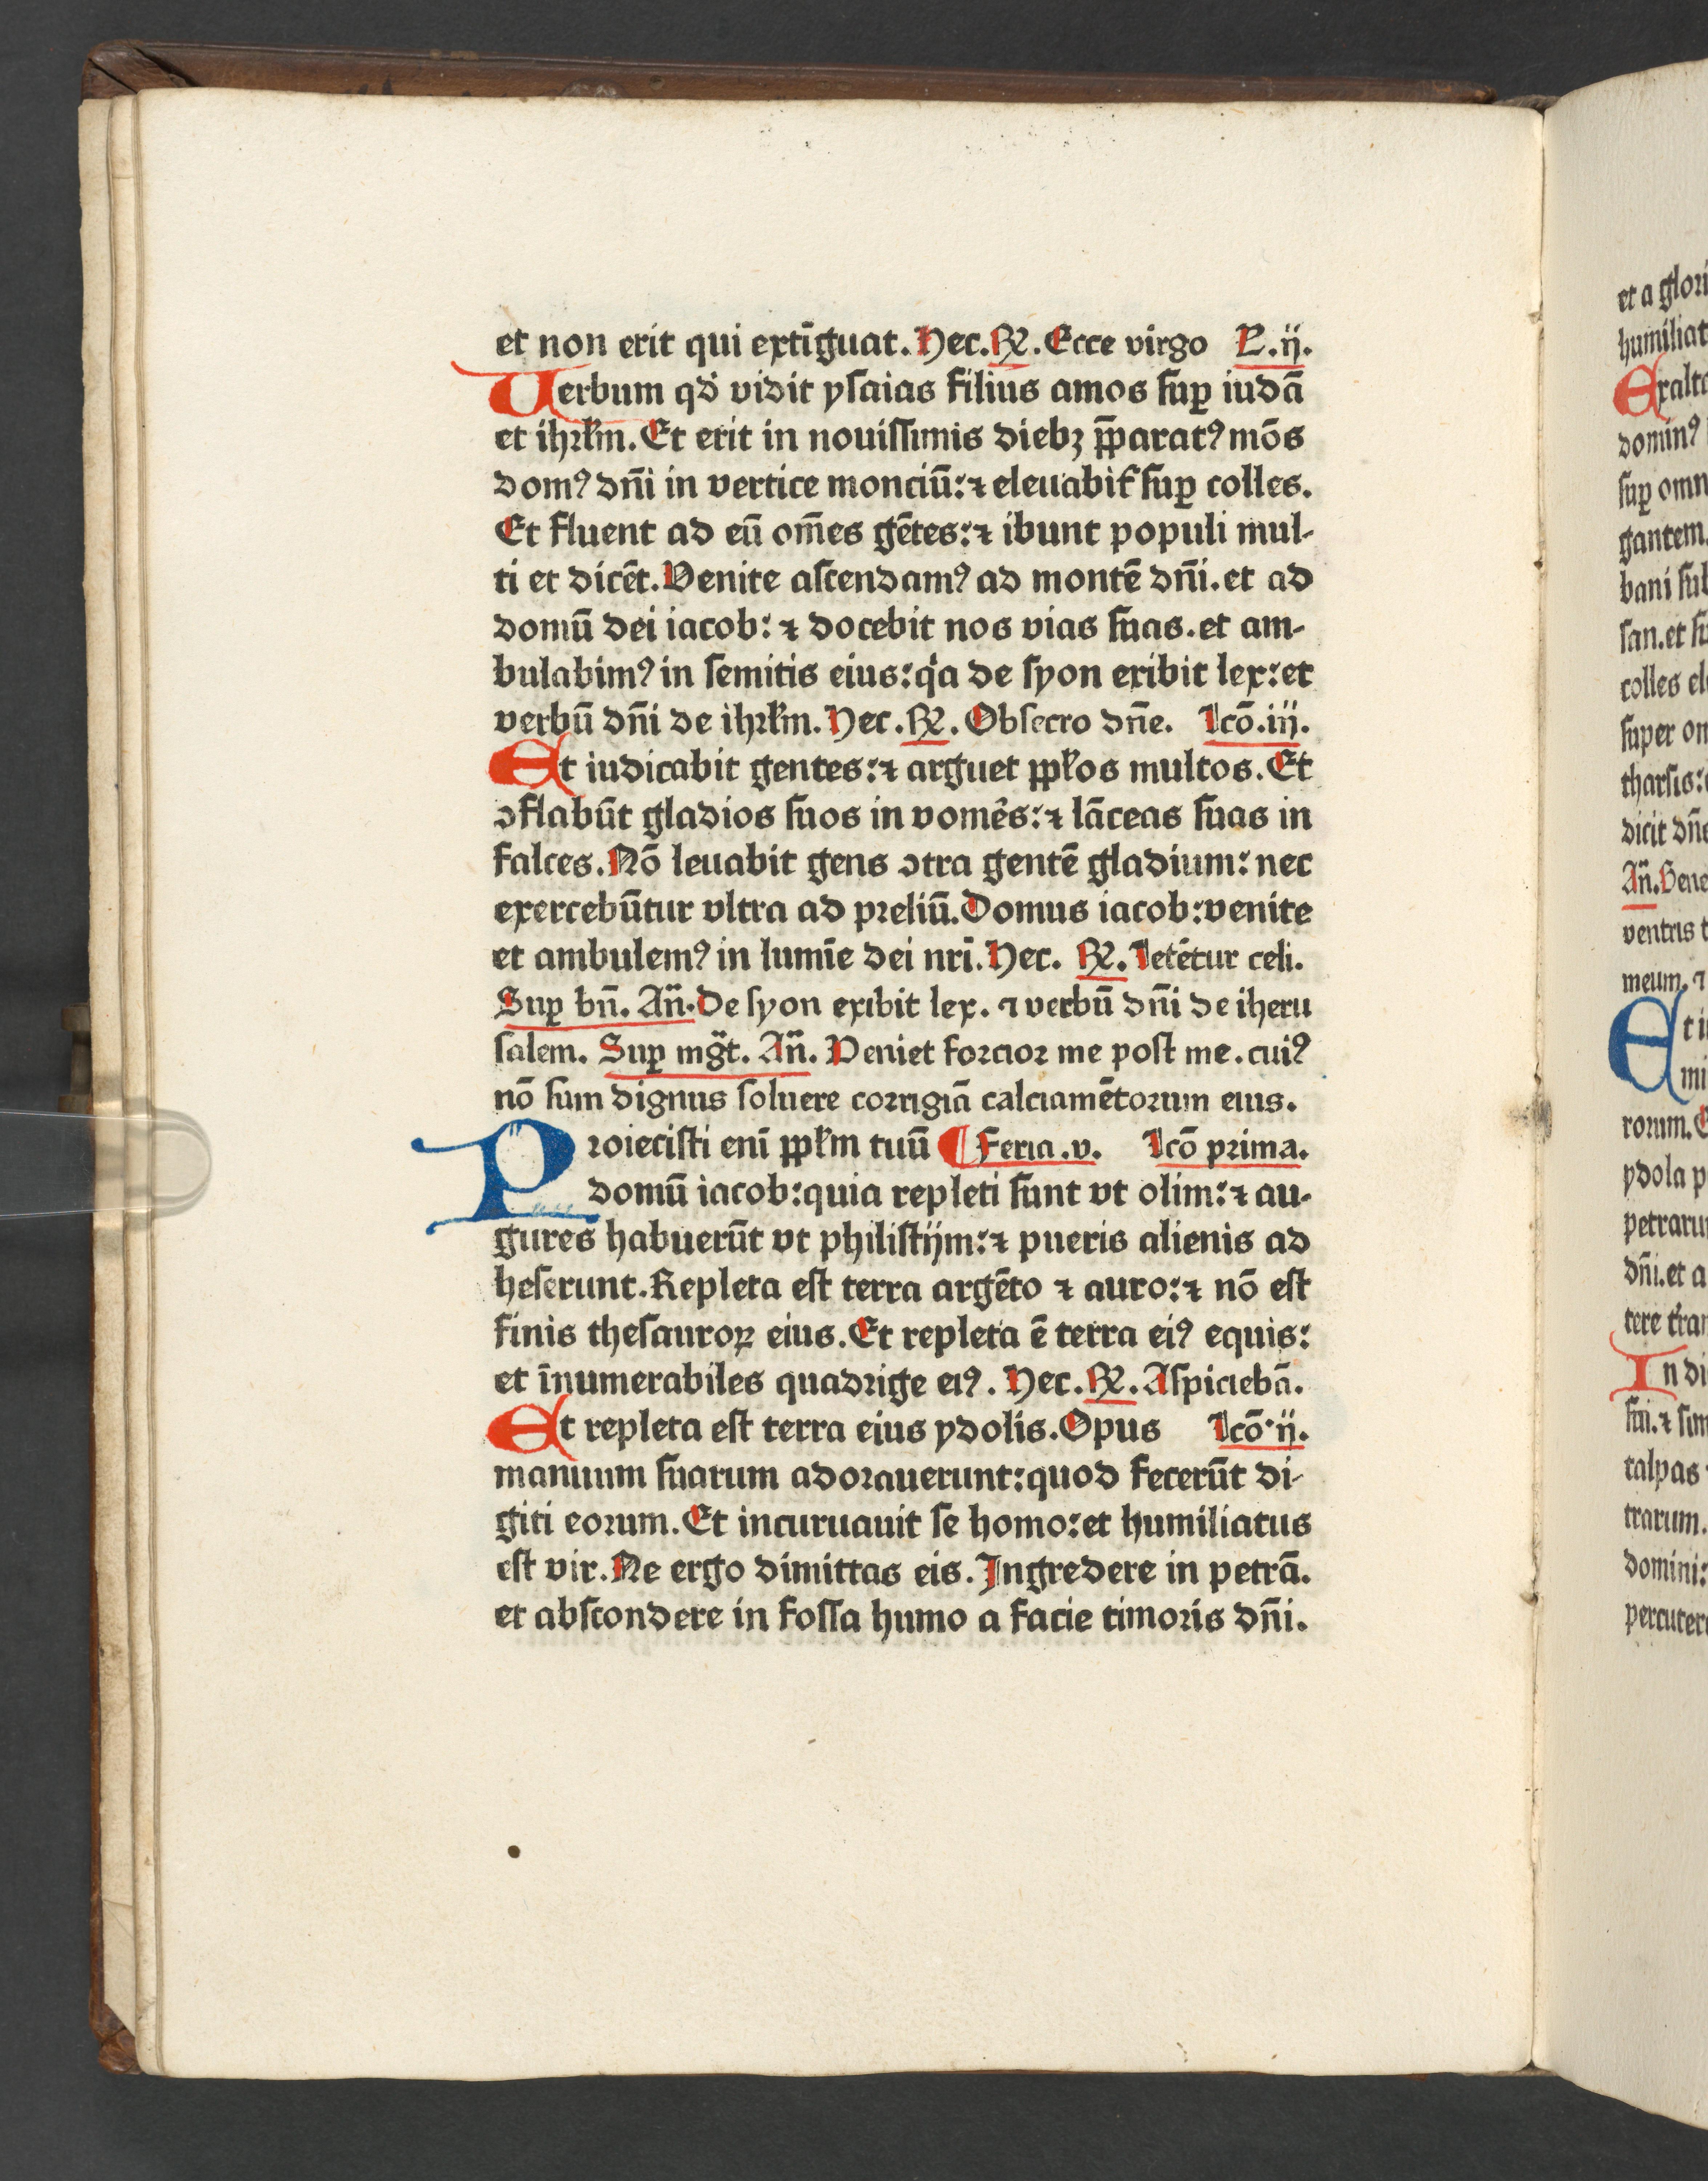 et non erit qui extīguat. Hec. ℟. Ecce virgo L.ij.
Uerbum qđ vidit ysaias filius amos suꝑ iudā
et ihrłm. Et erit in nouissimis diebꝫ p̄parat⁹ mōs
dom⁹ dn̄i in vertice monciū: ⁊ eleuabit᷑ suꝑ colles.
Et fluent ad eū om̄es gētes: ⁊ ibunt populi mul-
ti et dicēt. Venite ascendam⁹ ad montē dn̄i. et ad
domū dei iacob: ⁊ docebit nos vias suas. et am-
bulabim⁹ in semitis eius: qͥa de syon exibit lex: et
verbū dn̄i de ihrłm. Hec. ℟. Obsecro dn̄e. Lcō.iij.
Et iudicabit gentes: ⁊ arguet pp̄łos multos. Et
ꝯflabūt gladios suos in vomēs: ⁊ lāceas suas in
falces. Nō leuabit gens ꝯtra gentē gladium: nec
exercebūtur vltra ad preliū. Domus iacob: venite
et ambulem⁹ in lumīe dei nrī. Hec. ℟. Letētur celi.
Suꝑ bn̄. An̄. De syon exibit lex. ⁊ verbū dn̄i de iheru
salem. Suꝑ mḡt. An̄. Veniet forcior me post me. cui⁹
nō sum dignus soluere corrigiā calciamētorum eius.
Proiecisti enī pp̄łm tuū ¶ Feria.v. Lcō prima.
domū iacob: quia repleti sunt vt olim: ⁊ au-
gures habuerūt vt philistijm: ⁊ pueris alienis ad
heserunt. Repleta est terra argēto ⁊ auro: ⁊ nō est
finis thesauroꝝ eius. Et repleta ē terra ei⁹ equis:
et īnumerabiles quadrige ei⁹. Hec. ℟. Aspiciebā.
Et repleta est terra eius ydolis. Opus Lcō.ij.
manuum suarum adorauerunt: quod fecerūt di-
giti eorum. Et incuruauit se homo: et humiliatus
est vir. Ne ergo dimittas eis. Ingredere in petrā.
et abscondere in fossa humo a facie timoris dn̄i.
et a glori
humiliat
Exalta
domin⁹
suꝑ omn
gantem.
bani sub
san. et su
colles el
super om
tharsis:
dicit dn̄e
An̄. Bene
ventris t
meum. ⁊
Et i
mi
rorum. E
ydola p
petraru
dn̄i. et a
tere t᷑ar
In di
sui. ⁊ sim
talpas
trarum.
domini:
percutere